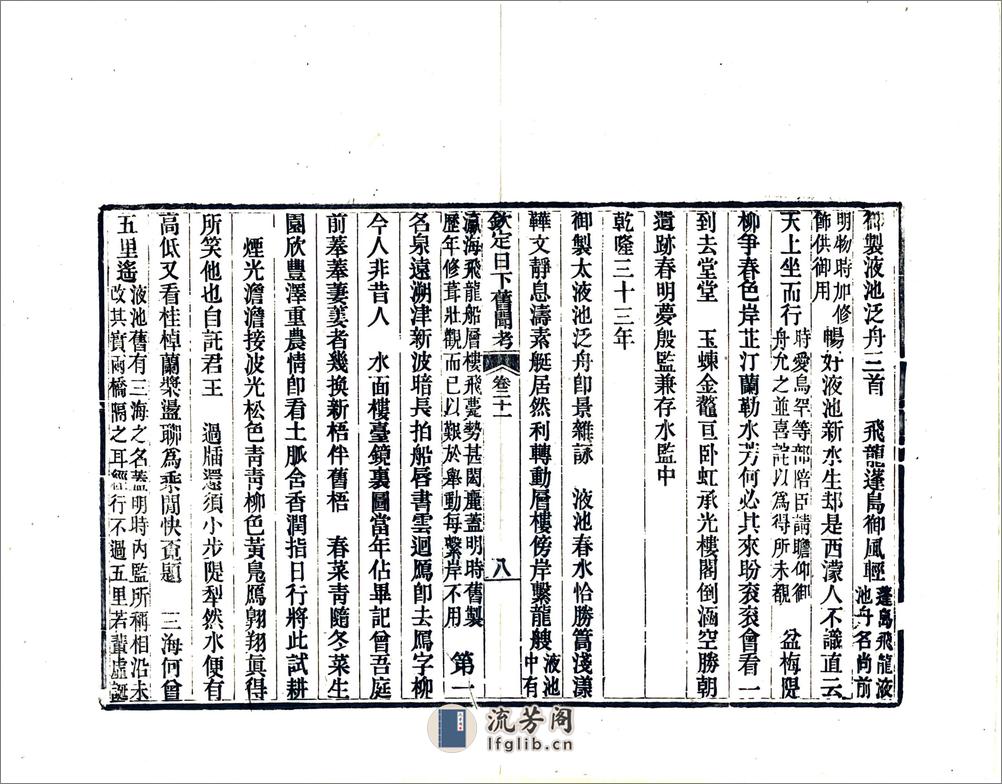 御製液池泛舟三首　飛龍蓬島御風輕蓬島飛龍液池舟名尚前
明物時加修飾供御用　暢好液池新水生却是西濛人不識直云
天上坐而行時愛烏罕等部陪臣請瞻仰御舟允之並喜詫以為得所未覩　盆梅隄
柳爭春色岸芷汀蘭勒水芳何必其來盼衮衮會看一
到去堂堂　玉蝀金鼇亘卧虹承光樓閣倒涵空勝朝
遺跡春明夢殷監兼存水監中
乾隆三十三年
御製太液池泛舟即景雜詠　液池春水恰勝篙淺漾
鞾文靜息濤素艇居然利轉動層樓傍岸繫龍艘液池中有
欽定日下舊聞考　卷二十一　八
瀛海飛龍船層樓飛甍勢甚閎麗蓋明時舊製歷年修葺壯觀而已以艱於舉動每繫岸不用　第一
名泉遠溯津新波暗長拍船唇書雲迴鴈卽去鴈字柳
今人非昔人　水面樓臺鏡裏圖當年佔畢記曾吾庭
前菶菶萋萋者幾換新梧伴舊梧　春菜靑隨冬菜生
園欣豐澤重農情卽看土脈含香潤指日行將此試耕
煙光澹澹接波光松色靑靑柳色黃鳧鴈翱翔眞得
所笑他也自託君王　過牐還須小步隄犁然水便有
高低又看桂棹蘭槳盪聊爲乘閒快覔題　三海何曾
五里遙液池舊有三海之名蓋明時内監所稱相沿未改其實兩橋隔之耳經行不過五里若輩虛誕
流芳阁
lfglib.cn